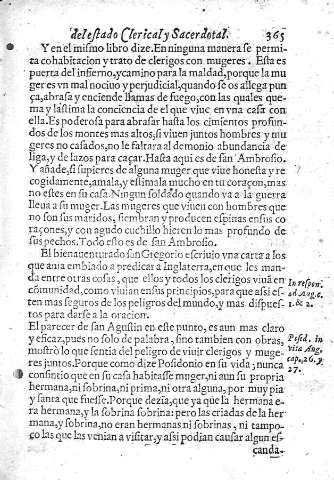 del estado Clerical y Sacerdotal. 365
Y en el mismo libro dize. En ninguna manera se permi-
ta cohabitacion y trato de clerigos con mugeres. Esta es
puerta del infierno, y camino para la maldad, porque la mu-
ger es vn mal nociuo y perjudicial, quando se os allega pun-
ça, abrasa y enciende llamas de fuego, con las quales que-
ma y lastima la conciencia de el que viue en vna casa con
ella. Es poderosa para abrasar hasta los cimientos profun-
dos de los montes mas altos, si viuen juntos hombres y mu-
geres no casados, no le faltara al demonio abundancia de
liga, y de lazos para caçar. Hasta aqui es de san Ambrosio.
Y añade, si supieres de alguna muger que viue honesta y re-
cogidamente, amala, y estimala mucho en tu coraçon, mas
no estes en su casa. Ningun soldado quando va a la guerra
lleua a su muger. Las mugeres que viuen con hombres que
no son sus maridos, siembran y producen espinas en sus co-
raçones, y con agudo cuchillo hieren lo mas profundo de
sus pechos. Todo esto es de san Ambrosio.
El bienauenturado san Gregorio escriuio vna carta a los
que auia embiado a predicar a Inglaterra, en que les man-
da entre otras cosas, que ellos y todos los clerigos viuā en
comunidad, como viuian en sus principios, para que assi es-
ten mas seguros de los peligros del mundo, y mas dispues-
tos para darse a la oracion.
In respon.
ad Aug. c.
1. & 2.
El parecer de san Agustin en este punto, es aun mas claro
y eficaz, pues no solo de palabra, sino tambien con obras,
mostrò lo que sentia del peligro de viuir clerigos y muge-
res juntos. Porque como dize Posidonio en su vida, nunca
consintio que en su casa habitasse muger, ni aun su propria
hermana, ni sobrina, ni prima, ni otra alguna, por muy pia
y santa que fuesse. Porque dezia, que ya que la hermana e-
ra hermana, y la sobrina sobrina: pero las criadas de la her
mana, y sobrina, no eran hermanas ni sobrinas, ni tampo-
co las que las venian a visitar, y assi podian causar algun es-
canda-
Posid. in
vita Aug.
cap. 26. y
27.